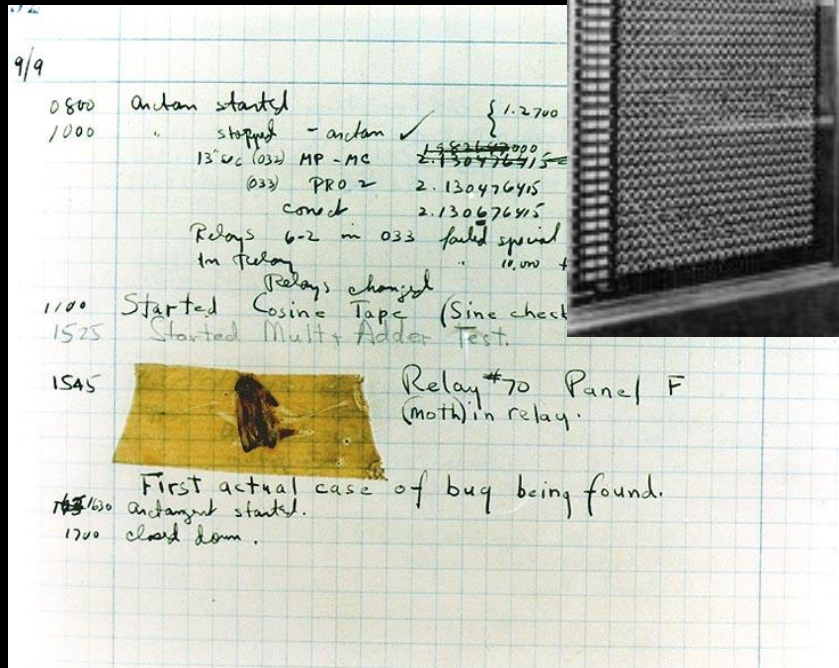 9/9
0800 arctan started { 1.2700
1000 " stopped - arctan ✓
13"uc (032) MP - MC 2.130476415
(033) PRO 2 2.130476415
correct 2.130676415
Relays 6-2 in 033 failed special
In Relay " 10,000
Relays changed
1100 Started Cosine Tape (Sine check
1525 Started Mult + Adder Test.
1545 Relay #70 Panel F
(moth) in relay.
First actual case of bug being found.
1630 arctangent started.
1700 closed down.